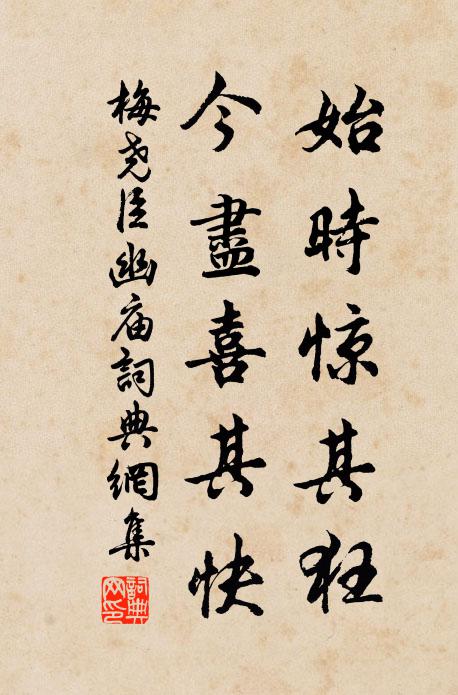 始時惊其狂
今盡喜其快
梅尧臣幽庙詞典網集
詞典网印